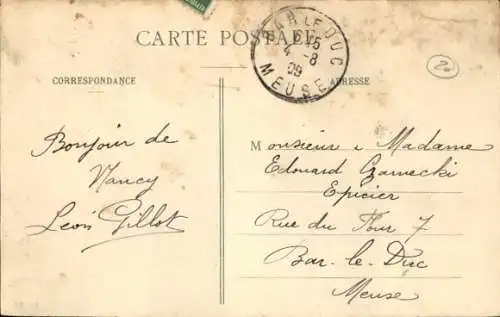 CARTE POSTALE
BAR LE DUC
6 15
4 -8
09
MEUSE
CORRESPONDANCE
ADRESSE
20
Bonjour de
Nancy
Léon Gillot
Monsieur & Madame
Edouard Czarnecki
Epicier
Rue du Four 7
Bar-le-Duc
Meuse